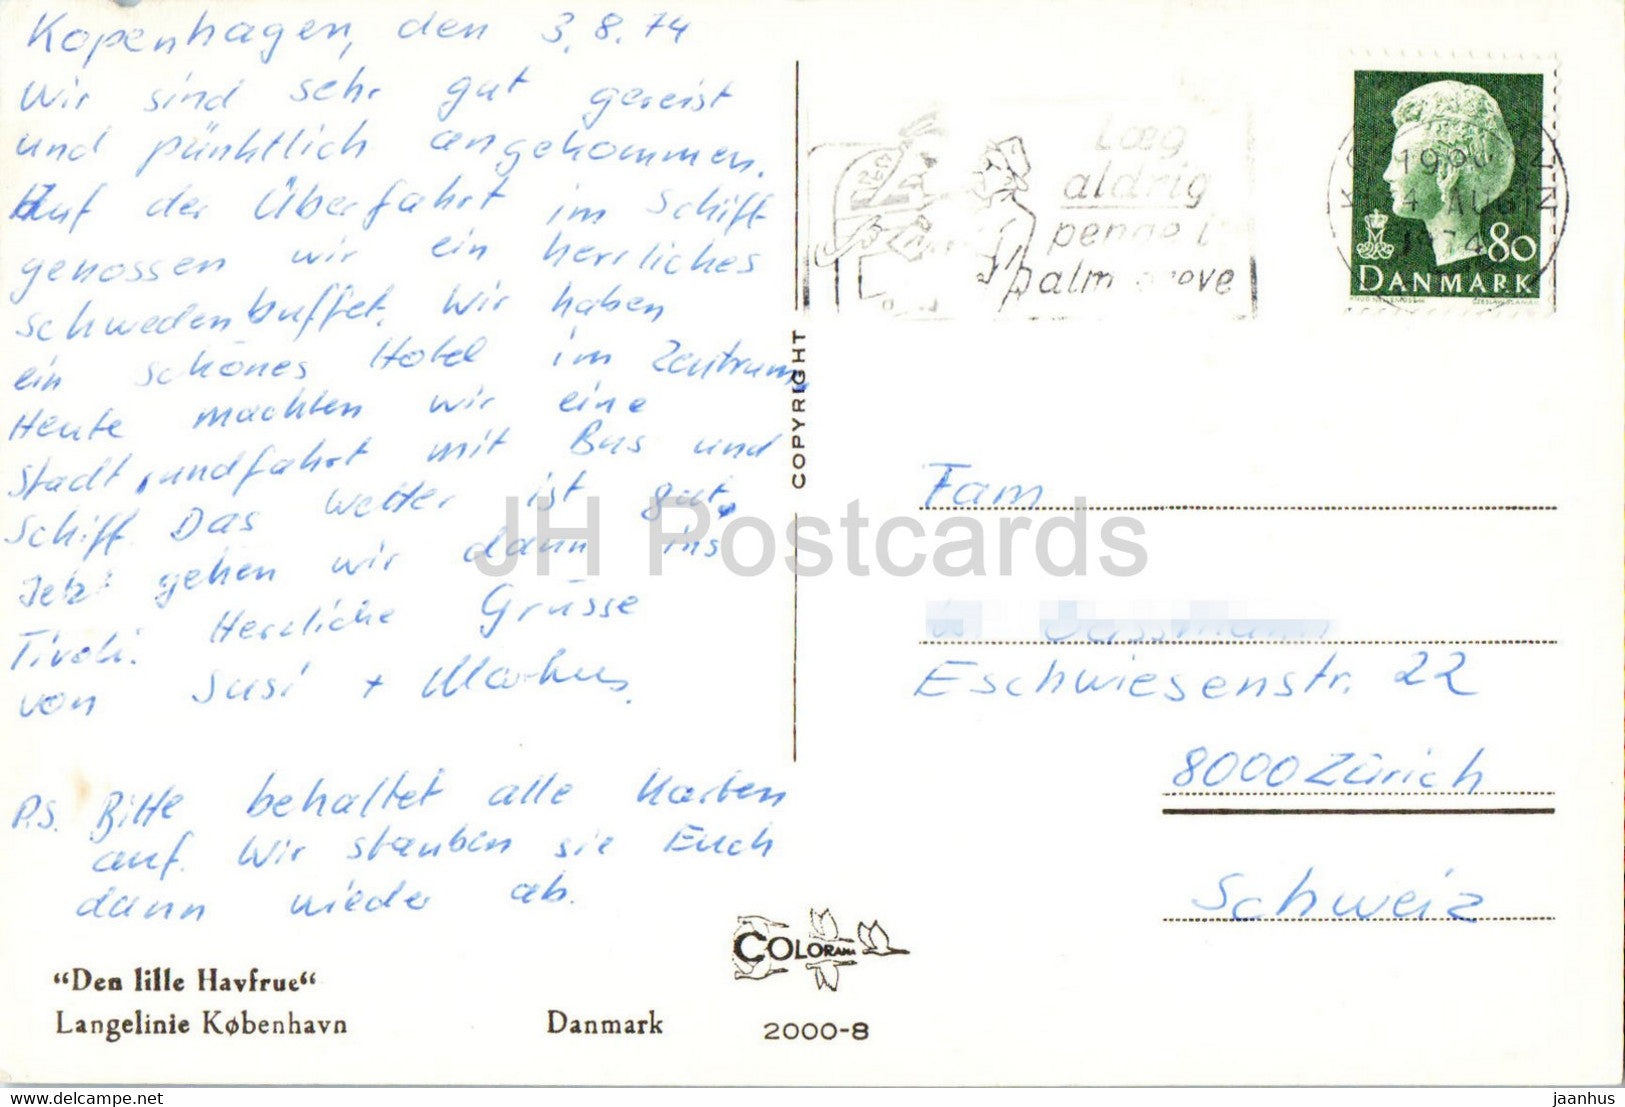 Kopenhagen, den 3.8.74
Wir sind sehr gut gereist
und pünktlich angekommen.
Auf der Überfahrt im Schiff
genossen wir ein herrliches
Schwedenbuffet. Wir haben
ein schönes Hotel im Zentrum.
Heute machten wir eine
Stadtrundfahrt mit Bus und
Schiff. Das Wetter ist gut.
Jetzt gehen wir dann ins
Tivoli. Herzliche Grüsse
von Susi + Markus.
P.S. Bitte behaltet alle Karten
auf. Wir stauben sie Euch
dann wieder ab.
"Den lille Havfrue"
Langelinie København
Danmark
COPYRIGHT
COLORAMA
2000-8
Læg
aldrig
penge i
palm
80
DANMARK
4 AUG
1974
Fam
Eschwiesenstr. 22
8000 Zürich
Schweiz
JH Postcards
jaanhus